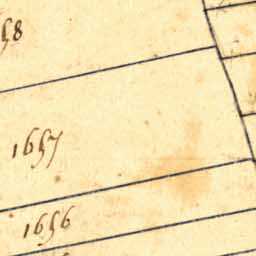 58
1657
1656